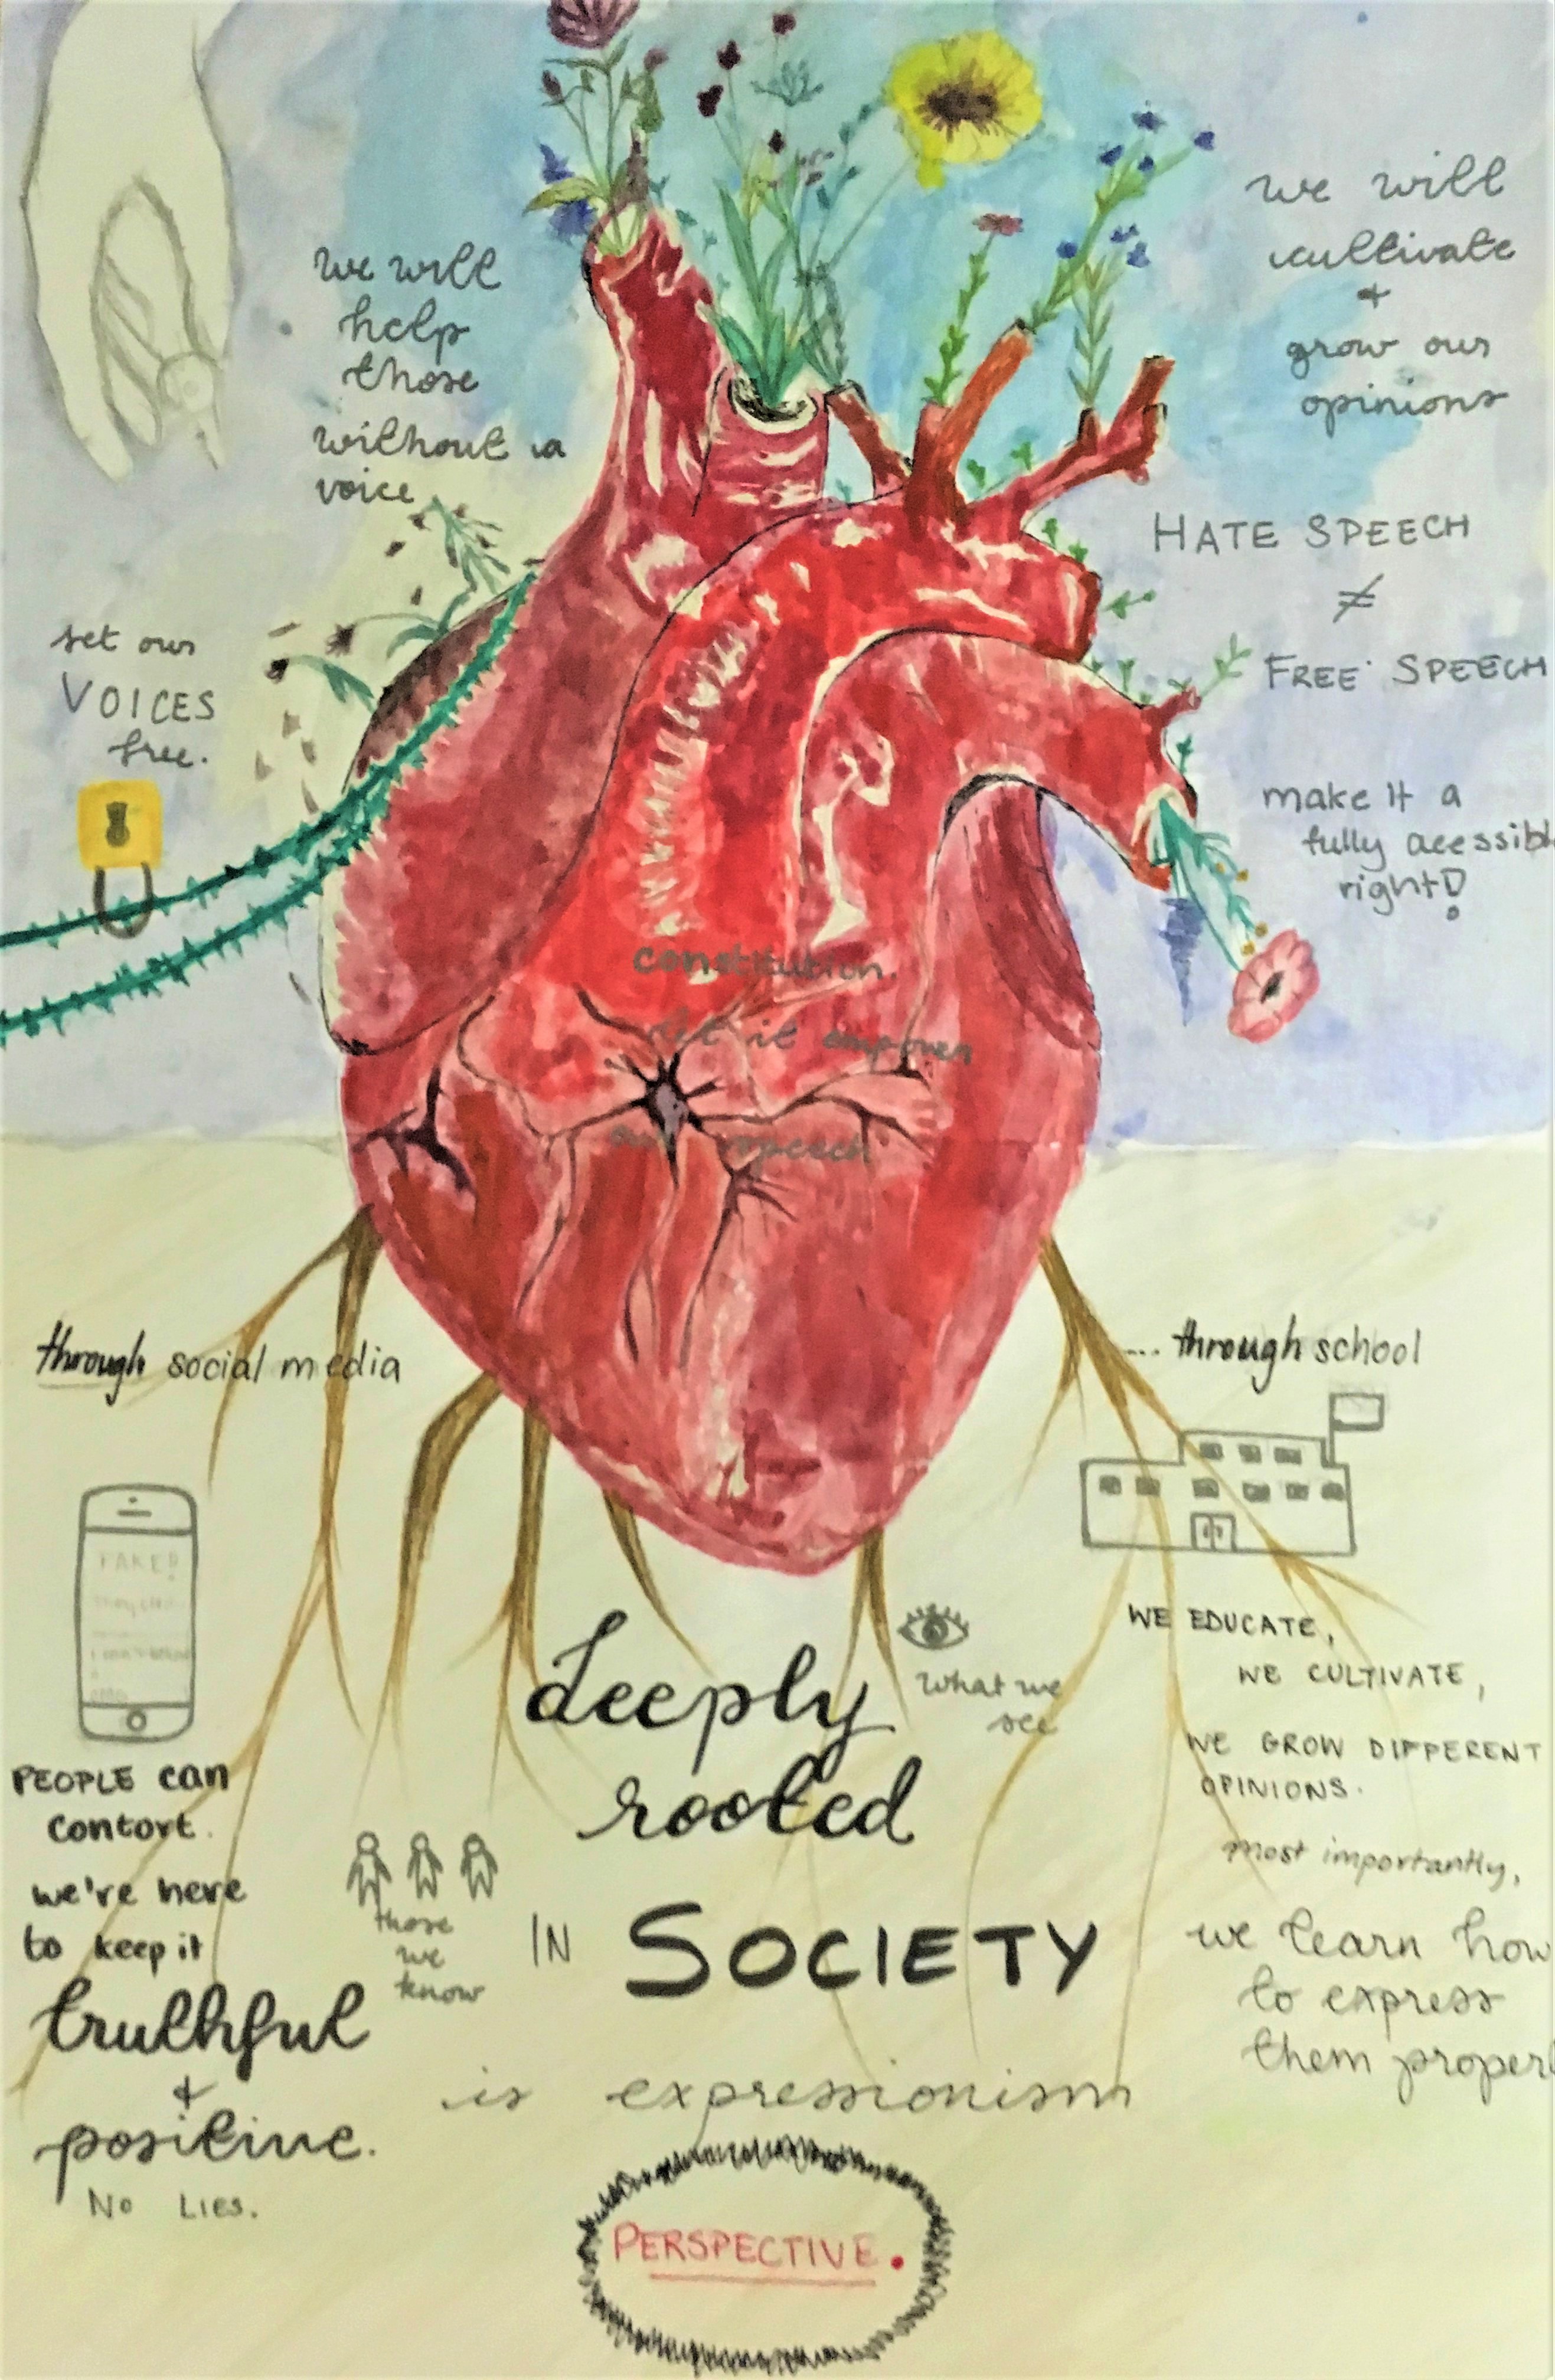 we will
help
those
without a
voice
we will
cultivate
+
grow our
opinions
set our
VOICES
free.
HATE SPEECH
≠
FREE SPEECH
make it a
fully acessibl
right!
constitution.
let it empower
our speech
through social media
... through school
FAKE!
PEOPLE can
contort.
we're here
to keep it
truthful
+
positive.
No Lies.
those
we
know
what we
see
deeply
rooted
IN SOCIETY
is expressionism
PERSPECTIVE.
WE EDUCATE,
WE CULTIVATE,
WE GROW DIFFERENT
OPINIONS.
most importantly,
we learn how
to express
them properl